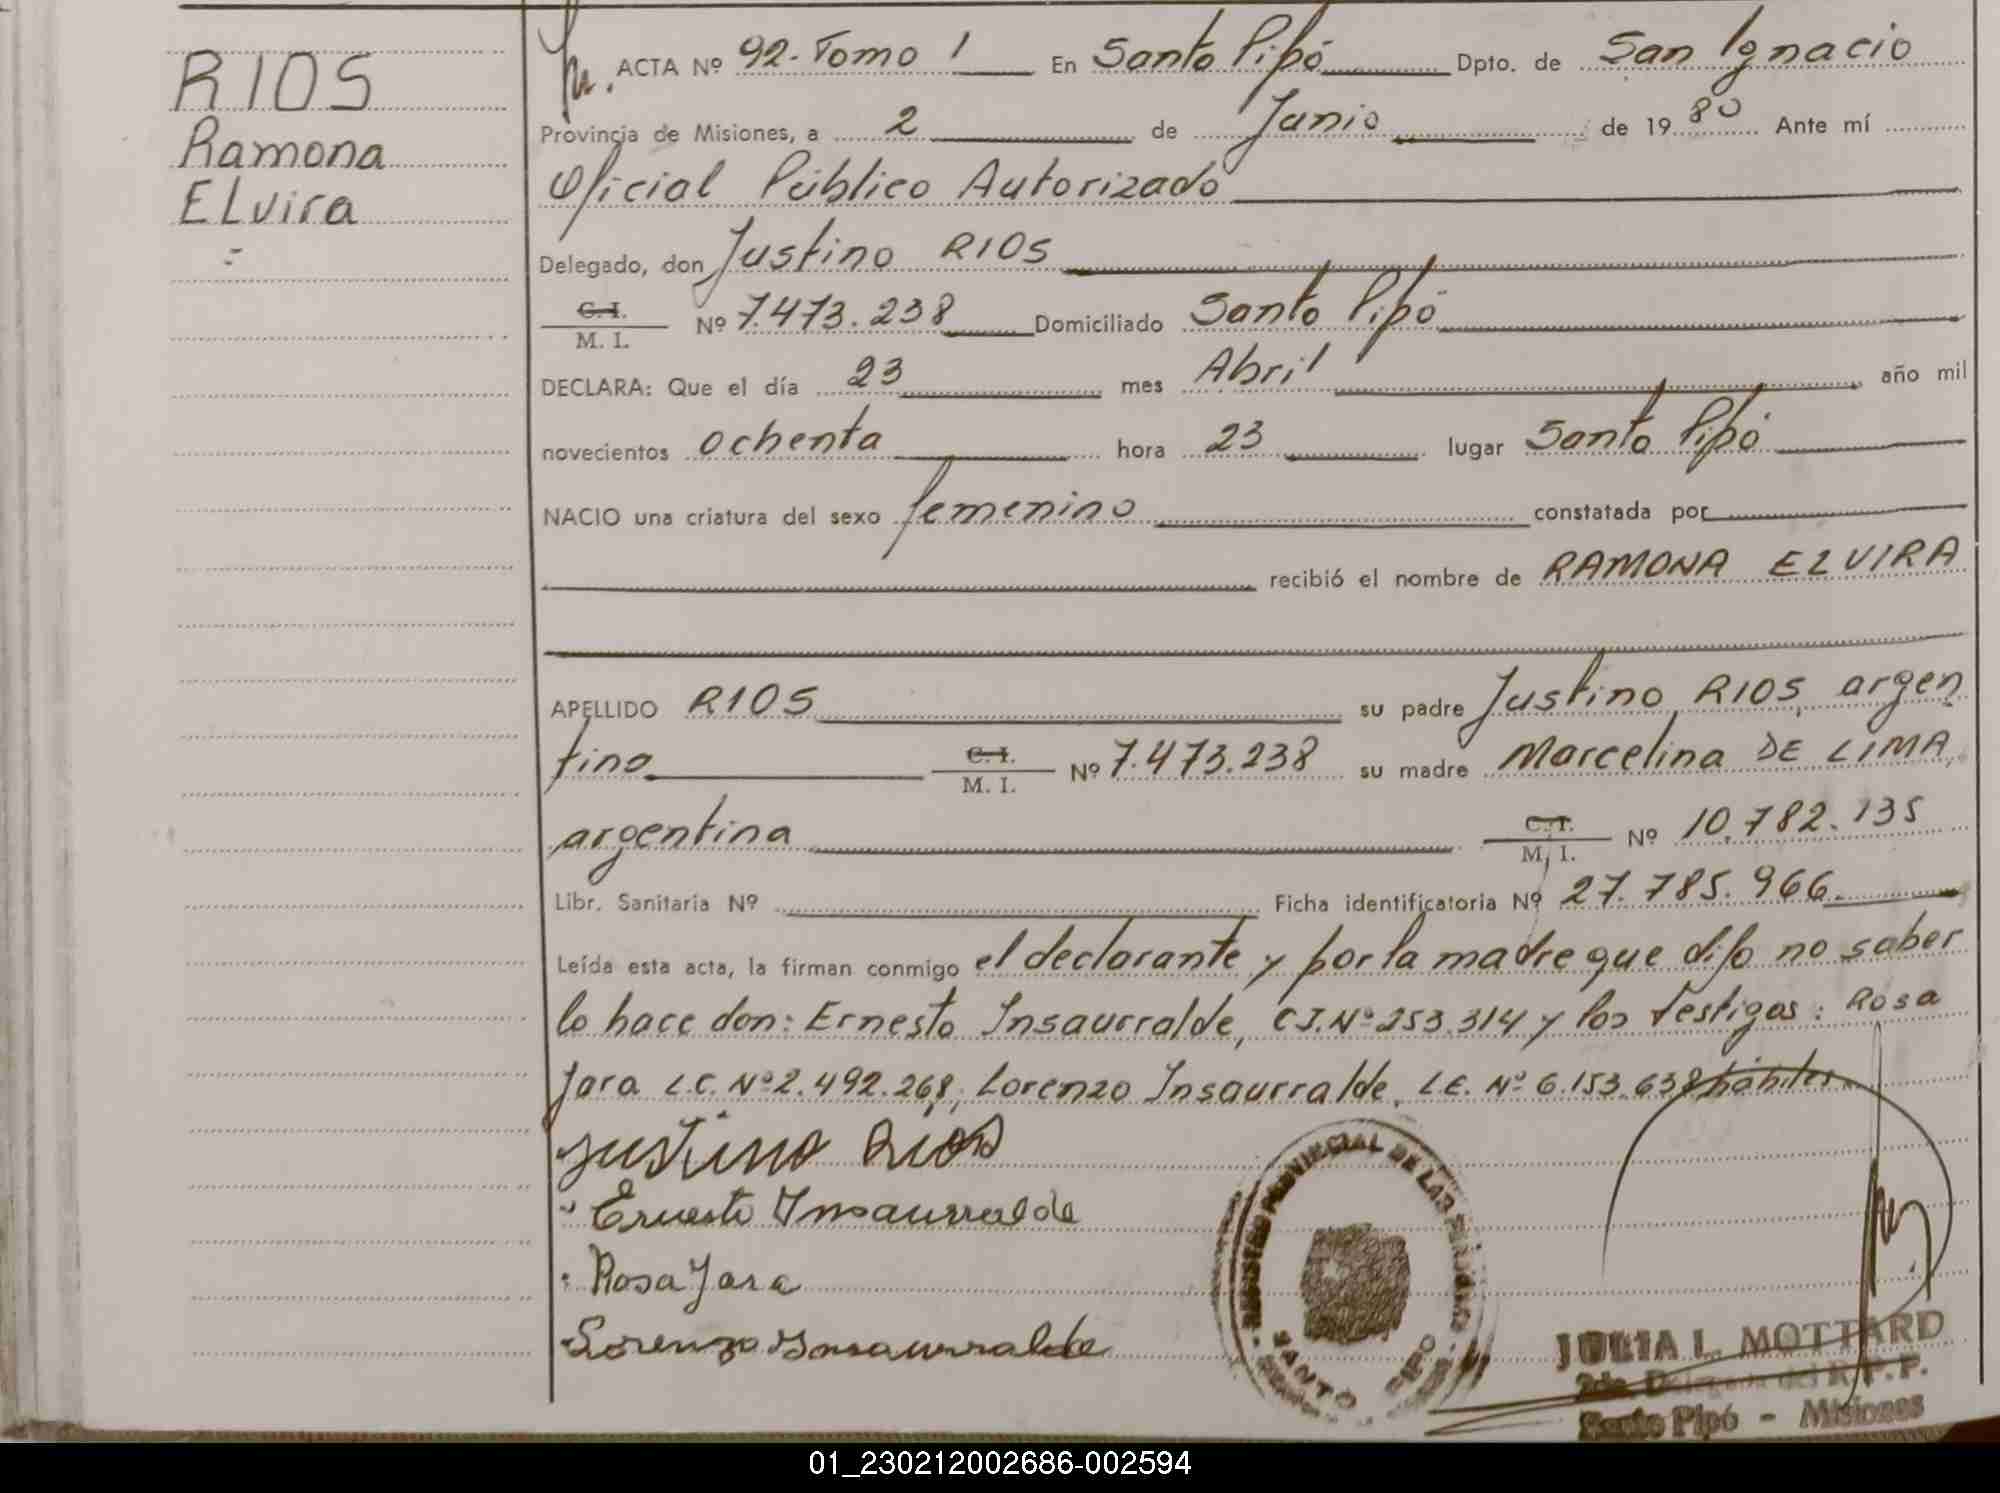 RIOS
Ramona
ELvira
=
ACTA Nº 92-Tomo 1 En Santo Pipó Dpto. de San Ignacio
Provincia de Misiones, a 2 de Junio de 1980 Ante mí
Oficial Público Autorizado
Delegado, don Justino RIOS
C. I.
M. I. Nº 7.473.238 Domiciliado Santo Pipó
DECLARA: Que el día 23 mes Abril año mil
novecientos ochenta hora 23 lugar Santo Pipó
NACIO una criatura del sexo femenino constatada por
recibió el nombre de RAMONA ELVIRA
APELLIDO RIOS su padre Justino RIOS, argen
tino C. I.
M. I. Nº 7.473.238 su madre Marcelina DE LIMA,
argentina C. I.
M. I. Nº 10.782.135
Libr. Sanitaria Nº Ficha identificatoria Nº 27.785.966.
Leída esta acta, la firman conmigo el declarante y por la madre que dijo no saber
lo hace don: Ernesto Insaurralde, C.I.Nº 253.314 y los testigos: Rosa
Jara L.C. Nº 2.492.268, Lorenzo Insaurralde, L.E. Nº 6.153.638 hábiles.
Justino Rios
Ernesto Insaurralde
Rosa Jara
Lorenzo Insaurralde
REGISTRO PROVINCIAL DE LAS PERSONAS
SANTO PIPO
JULIA L. MOTTARD
2da. Delegada del R.P.P.
Santo Pipó - Misiones
01_230212002686-002594